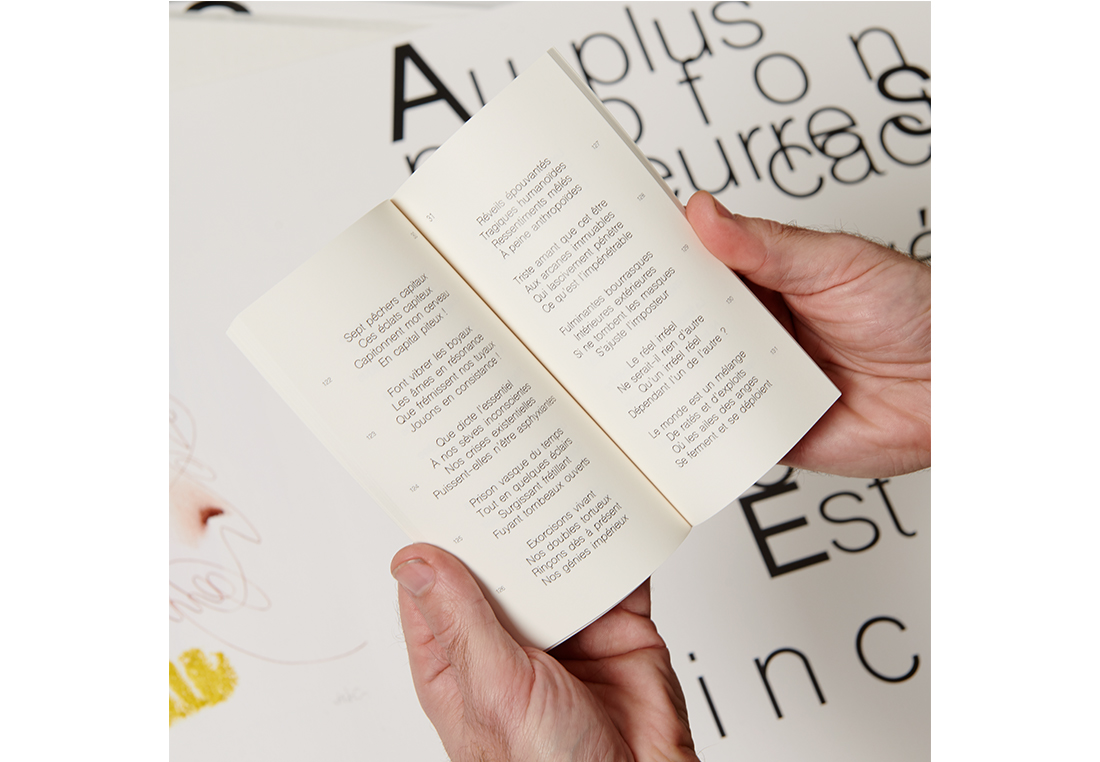 Au plus
fon
eurres
cac
Est
inc
31
122
Sept pêchers capitaux
Ces éclats capiteux
Capitonnent mon cerveau
En capital piteux !
123
Font vibrer les boyaux
Les âmes en résonance
Que frémissent nos tuyaux
Jouons en consistance !
124
Que dicte l'essentiel
À nos sèves inconscientes
Nos crises existentielles
Puissent-elles n'être asphyxiantes
125
Prison vasque du temps
Tout en quelques éclairs
Surgissant frétillant
Fuyant tombeaux ouverts
126
Exorcisons vivant
Nos doubles tortueux
Rinçons dès à présent
Nos génies impérieux
127
Réveils épouvantés
Tragiques humanoïdes
Ressentiments mêlés
À peine anthropoïdes
128
Triste amant que cet être
Aux arcanes immuables
Qui lascivement pénètre
Ce qu'est l'impénétrable
129
Fulminantes bourrasques
Intérieures extérieures
Si ne tombent les masques
S'ajuste l'imposteur
130
Le réel irréel
Ne serait-il rien d'autre
Qu'un irréel réel
Dépendant l'un de l'autre ?
131
Le monde est un mélange
De ratés et d'exploits
Où les ailes des anges
Se ferment et se déploient